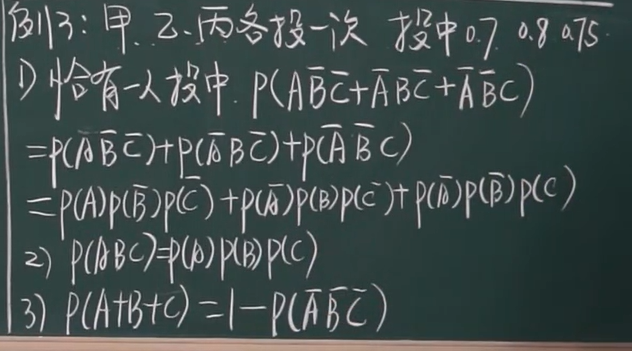 例3: 甲、乙、丙各投一次 投中0.7 0.8 0.75.
1) 恰有一人投中. P(AB̅C̅+A̅BC̅+A̅B̅C)
=p(AB̅C̅)+p(A̅BC̅)+p(A̅B̅C)
=p(A)p(B̅)p(C̅)+p(A̅)p(B)p(C̅)+p(A̅)p(B̅)p(C)
2) p(ABC)=p(A)p(B)p(C)
3) p(A+B+C)=1-P(A̅B̅C̅)